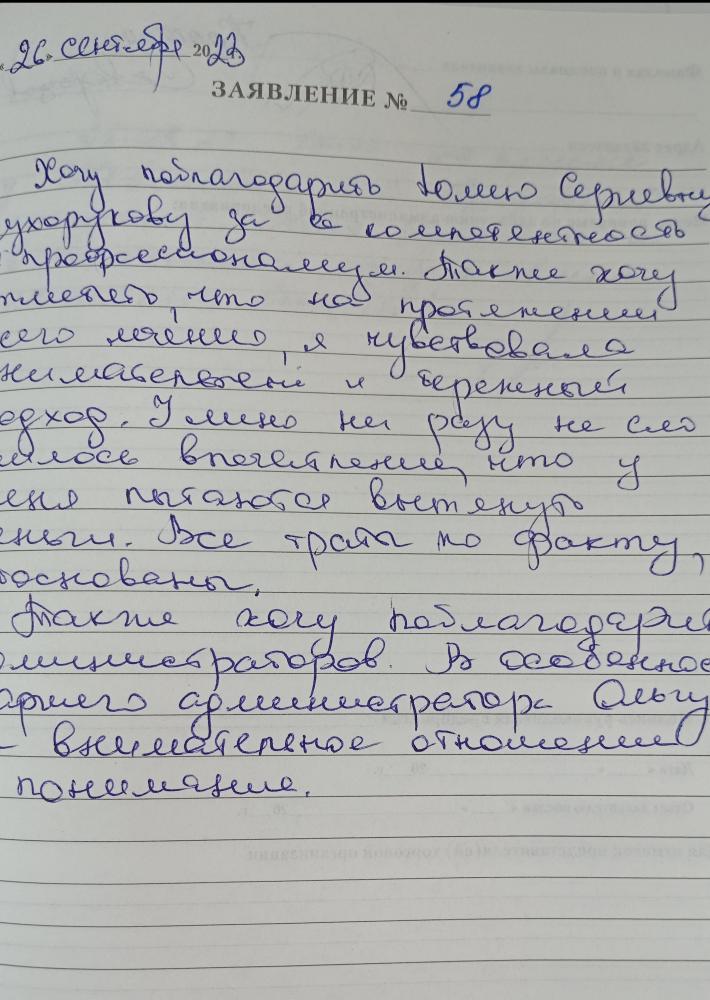 «26» сентября 2023
ЗАЯВЛЕНИЕ № 58
Хочу поблагодарить Юлию Сергевну
ухорукову за её компетентность
профессионализм. Также хочу
тметить, что на протяжении
сего лечения, я чувствовала
нимательный и бережный
одход. У меня ни разу не сло
илось впечатление, что у
еня пытаются вытянуть
еньги. Все траты по факту,
боснованы.
Также хочу поблагодарит
министраторов. В особеннос
аршего администратора Ольгу
внимательное отношении
понимание.